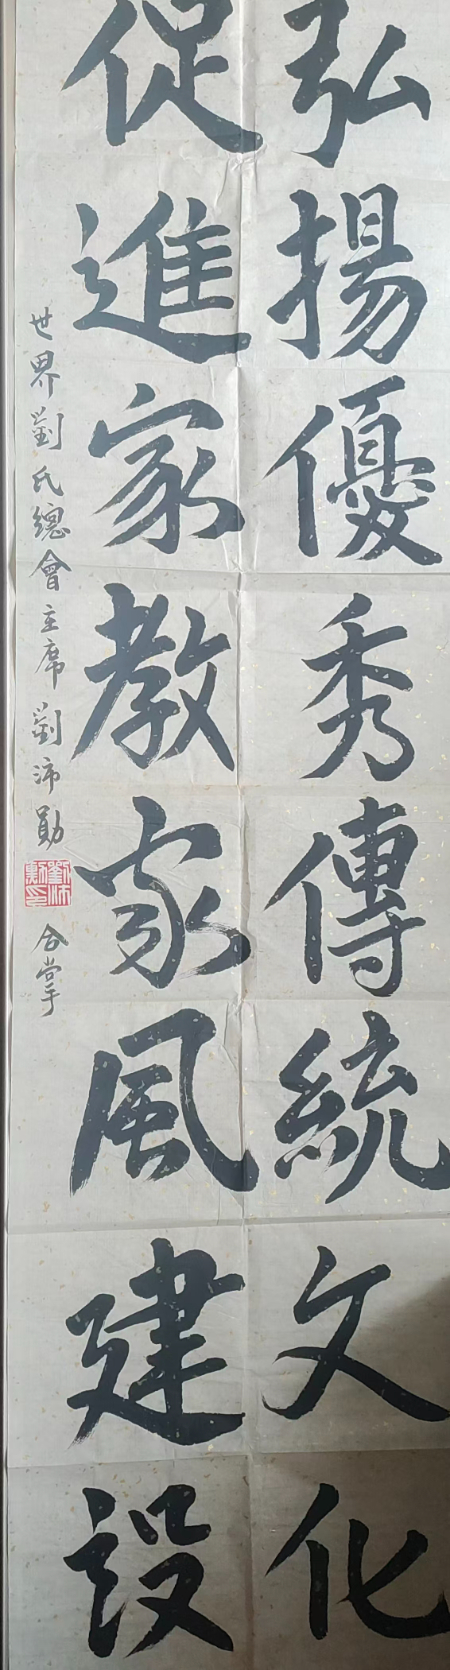 弘揚優秀傳統文化
促進家教家風建設
世界劉氏總會主席劉沛勛
劉沛勛印
合掌